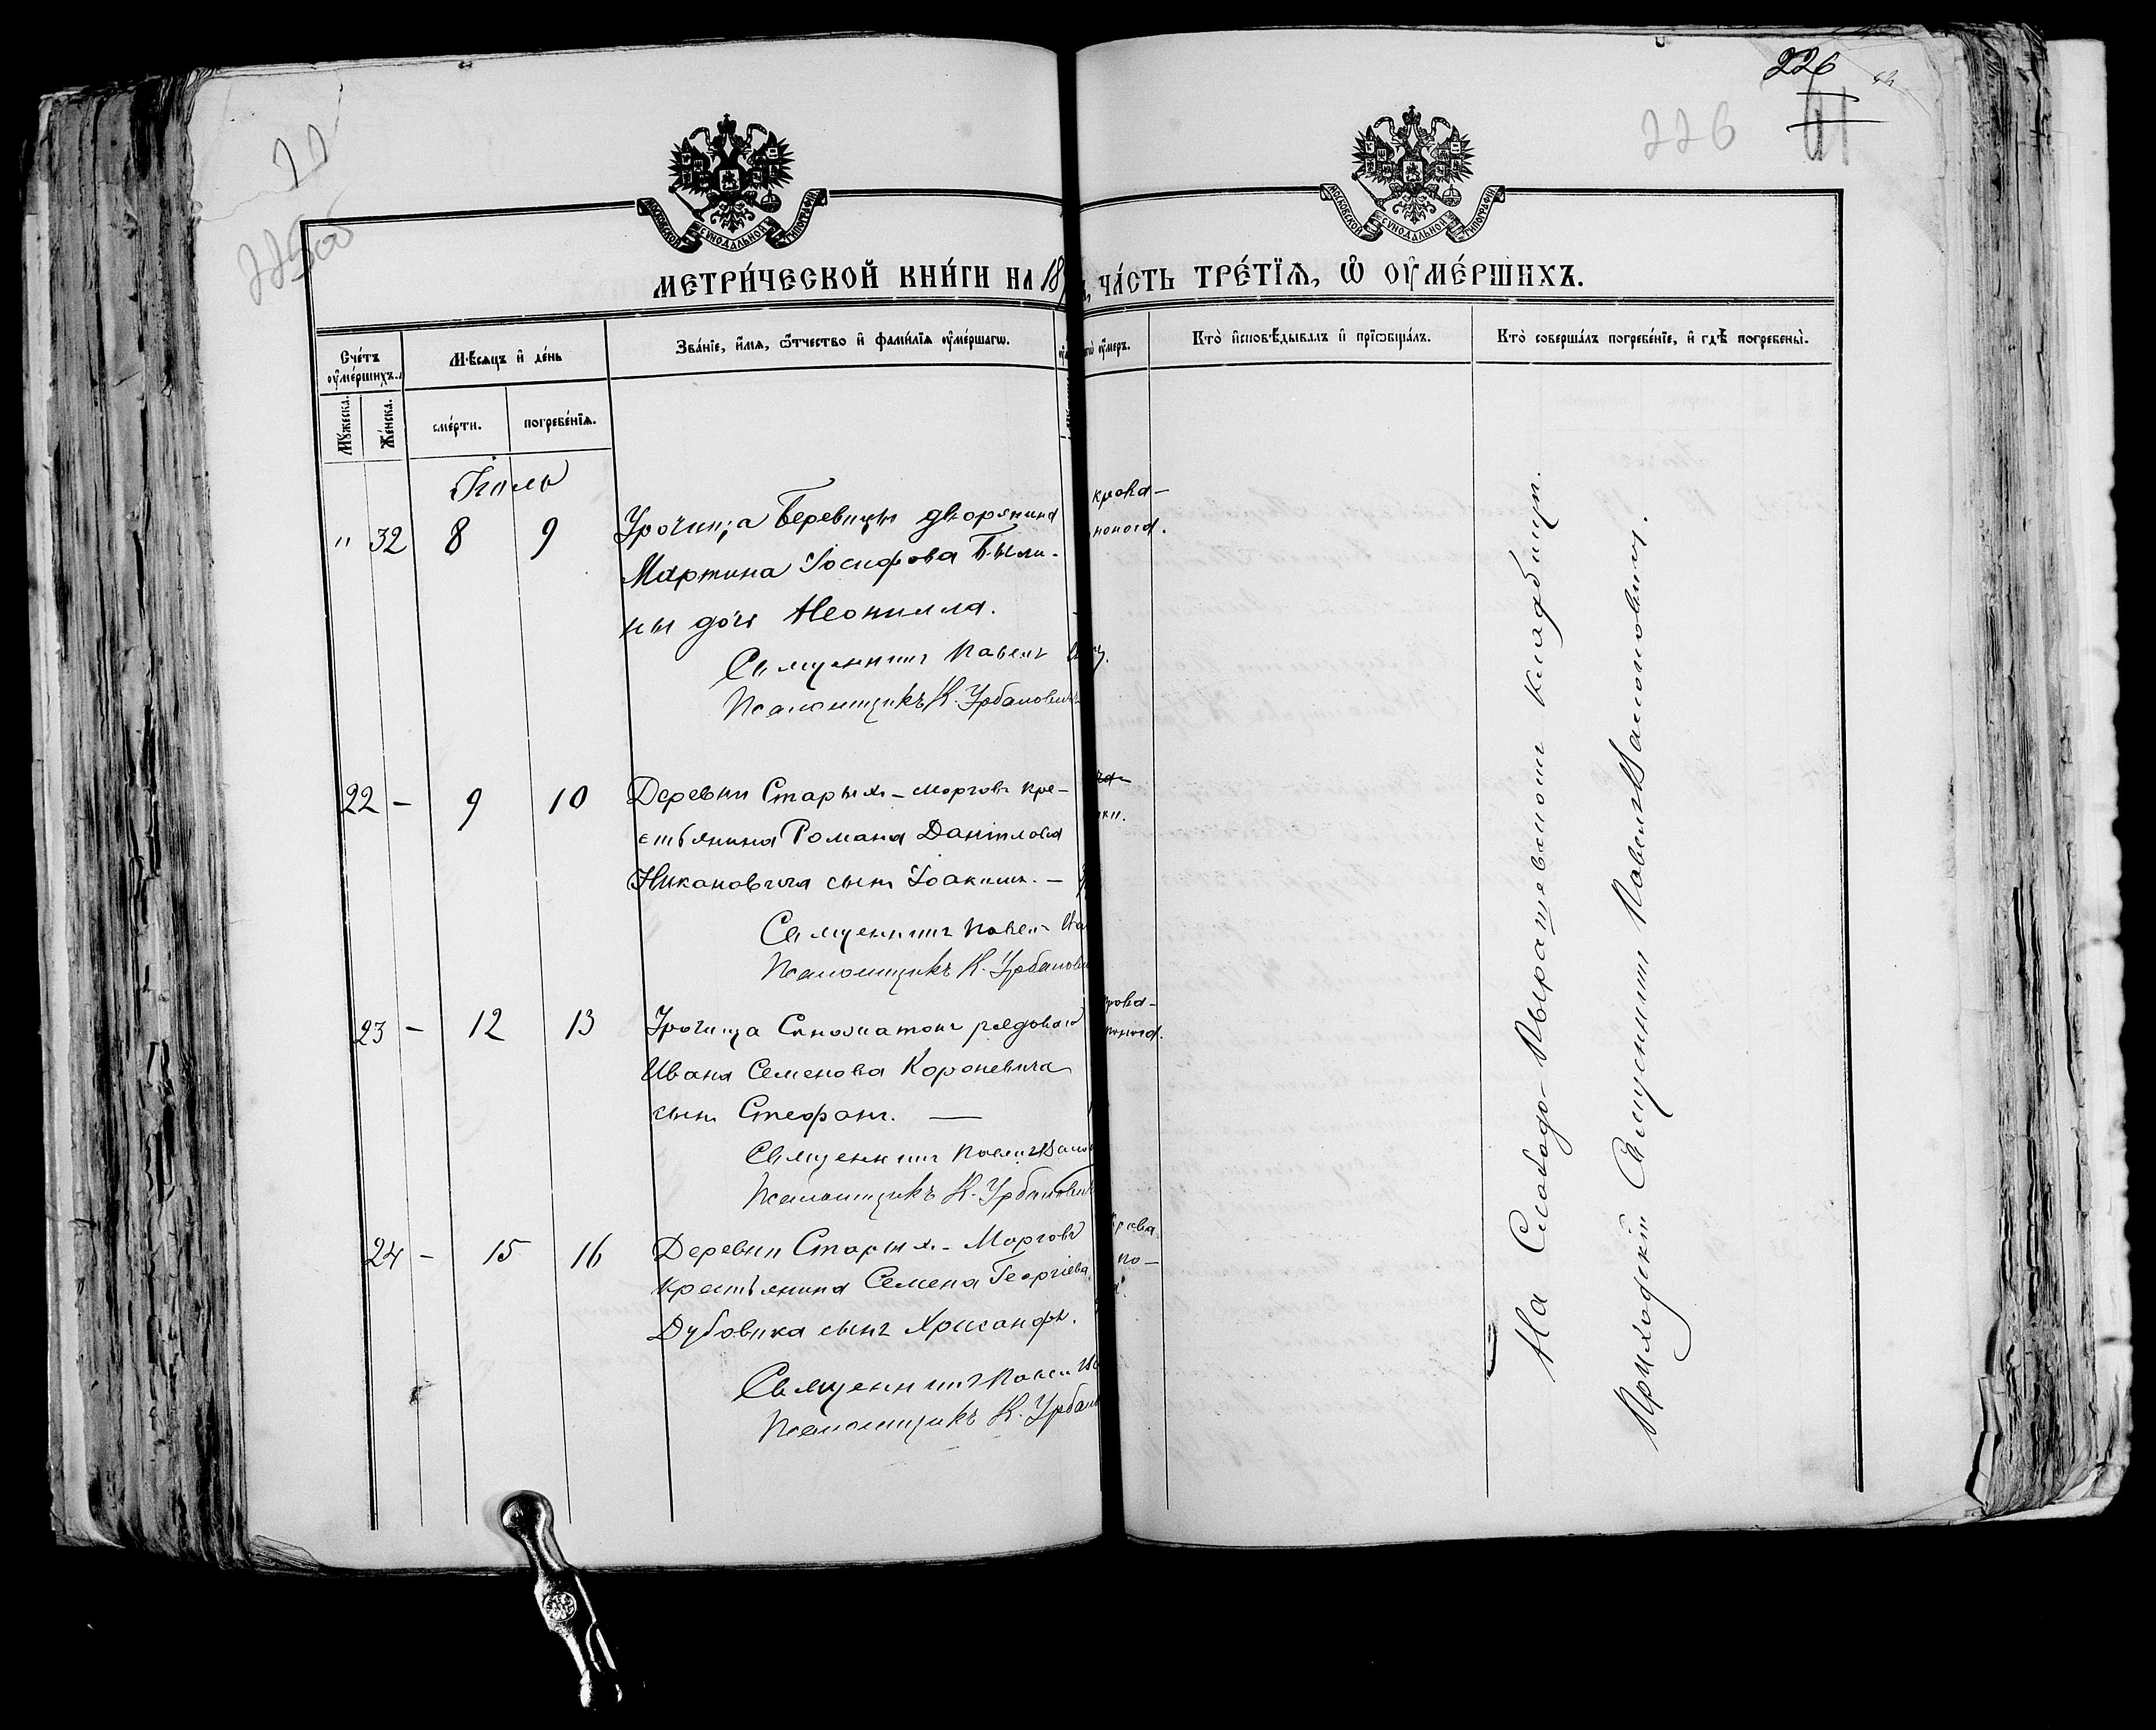 226
226
МОСКОВСКОЙ СѴНОДАЛЬНОЙ ТИПОГРАФІИ
МОСКОВСКОЙ СѴНОДАЛЬНОЙ ТИПОГРАФІИ
МЕТРИ́ЧЕСКОЙ КНИ́ГИ НА 18
ЧА́СТЬ ТРЕ́ТЇѦ, Ѡ҆ ОУ҆МЕ́РШИХЪ.
Сче́тъ оу҆ме́ршихъ.
Мѣ́сяцъ и҆ де́нь
Зва́нїе, и҆́мѧ, ѻ҆́тчество и҆ фами́лїѧ оу҆ме́ршагѡ.
оу҆́меръ.
Кто̀ и҆сповѣ́дывалъ и҆ прїѡбща́лъ.
Кто̀ соверша́лъ погребе́нїе, и҆ гдѣ̀ погребены̀.
Мꙋ́жеска.
Же́нска.
сме́рти.
погребе́нїѧ.
Іюль
" 32 8 9 Урочища Беревицы дворянина
Мартина Іосифова Были-
ны дочь Неонилла.
Священникъ Павелъ
Псаломщикъ К. Урбановичъ
крова-
поноса.
22 - 9 10 Деревни Старыхъ-Морговъ кре-
стьянина Романа Даніилова
Никановича сынъ Іоакимъ. -
Священникъ Павелъ
Псаломщикъ К. Урбанови
23 - 12 13 Урочища рядоваго
Ивана Семенова Короневича
сынъ Стефанъ. -
Священникъ Павелъ
Псаломщикъ К. Урбанович
крова-
поноса.
24 - 15 16 Деревни Старыхъ-Морговъ
крестьянина Семена Георгіева
Дубовика сынъ Хрисанфъ.
Священникъ Павелъ
Псаломщикъ К. Урбан
крова
по-
На Слободо-Пырашевскомъ кладбищѣ.
Приходскій Священникъ Павелъ